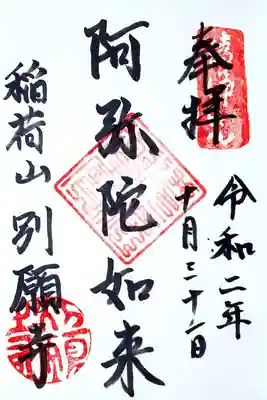 奉拝
令和二年
十月三十一日
阿弥陀如来
稲荷山別願寺